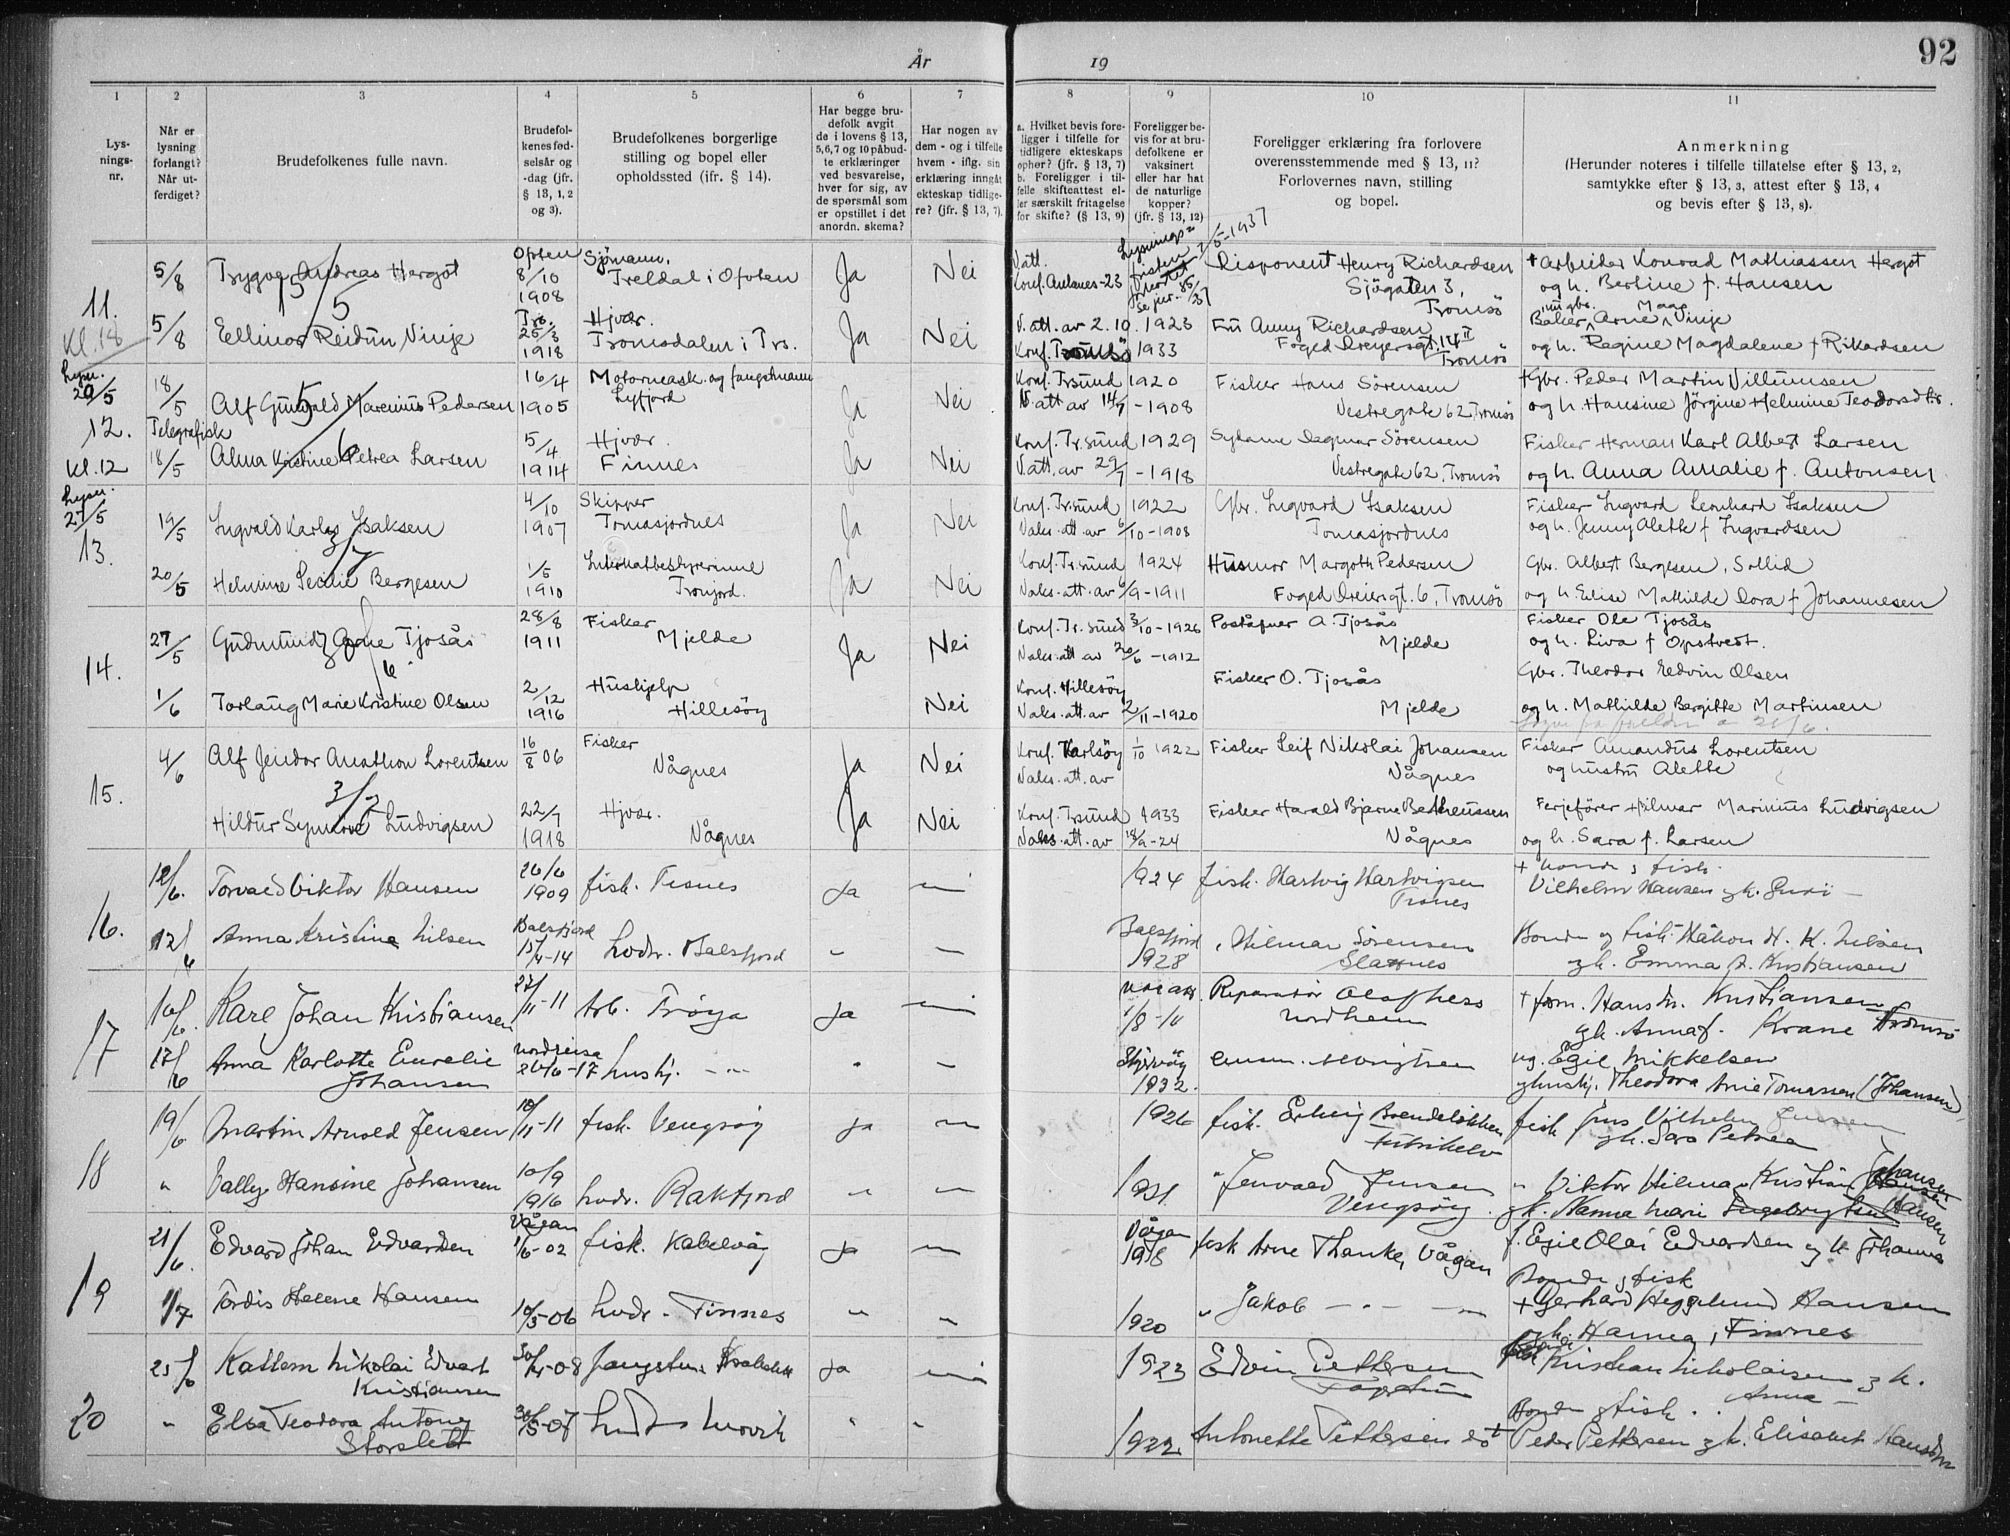 År 19
92
1 2 3 4 5 6 7 8 9 10 11
Lys-
nings-
nr.
Når er
lysning
forlangt?
Når ut-
ferdiget?
Brudefolkenes fulle navn.
Brudefol-
kenes fød-
selsår og
-dag (jfr.
§ 13, 1, 2
og 3).
Brudefolkenes borgerlige
stilling og bopel eller
opholdssted (ifr. § 14).
Har begge bru-
defolk avgit
de i lovens § 13,
5,6,7 og 10 påbud-
te erklæringer
ved besvarelse,
hver for sig, av
de spørsmål som
er opstillet i det
anordn. skema?
Har nogen av
dem - og i tilfelle
hvem - iflg. sin
erklæring inngåt
ekteskap tidlige-
re? (jfr. § 13, 7).
a. Hvilket bevis fore-
ligger i tilfelle for
tidligere ekteskaps
ophør? (jfr. § 13, 7)
b. Foreligger i til-
felle skifteattest el-
ler særskilt fritagelse
for skifte? (§ 13, 9)
Foreligger be-
vis for at bru-
defolkene er
vaksinert
eller har hat
de naturlige
kopper?
(jfr. § 13, 12)
Foreligger erklæring fra forlovere
overensstemmende med § 13, 11?
Forlovernes navn, stilling
og bopel.
Anmerkning
(Herunder noteres i tilfelle tillatelse efter § 13, 2,
samtykke efter § 13, 3, attest efter § 13, 4
og bevis efter § 13, 8).
11.
Kl. 18
5/8 Trygve Andreas Hergot Ofoten 8/10 1908 Sjømann. Treldal i Ofoten Ja Nei V.att. Konf. Ankenes-23 Lysnings-fristen Se jnr. 85/37 Disponent Henry Richardsen Sjøgaten 3, Tromsö + Arbeider Konrad Mathiassen Hergot
og h. Bertine f. Hansen
15/5
5/8 Ellinor Reidun Vinje Trs. 25/3 1918 Hjvær. Tromsdalen i Trs. Ja Nei V. att. av 2.10. 1923 Fru Anny Richardsen Baker Arne Vinje
Konf. Tromsö 1933 Foged Dreyersgt. 14 II Tromsö og h. Regine Magdalene f Rikardsen
Lysn. 20/5
12.
Kl. 12
18/5 Alf Gunvald Marenius Pedersen 16/4 1905 Motormask. og fangstmann Lyfjord Ja Nei Konf. Trsund 1920 Fisker Hans Sörensen +Gbr. Peder Martin Villumsen
V. att av 14/9 - 1908 Vestregate 62, Tromsö og h. Hansine Jörgine Helmine Teodorsdtr.
5/6
Telegrafisk
18/5 Alma Kristine Petrea Larsen 5/4 1914 Hjvær. Finnes Ja Nei Konf. Tr.sund 1929 Sydame Dagmar Sörensen Fisker Herman Karl Albert Larsen
V.att. av 29/9 - 1918 Vestregate 62, Tromsö og h. Anna Amalie f. Antonsen
Lysn. 27/5
13.
19/5 Ingvald Karlos Isaksen 4/10 1907 Skipper Tomasjordnes Ja Nei Konf. Tr.sund 1922 Gbr. Ingvard Isaksen Fisker Ingvard Leonhard Isaksen
Vaks.att.av 6/10-1908 Tomasjordnes og h. Jenny Alette f Ingvardsen
20/5 Helmine Secilie Bergesen 1/5 1910 Internatbestyrerinne Tromjord. Ja Nei Konf. Tr.sund 1924 Husmor Margoth Pedersen Gbr. Albert Bergesen, Sollid
Vaks.att.av 6/9-1911 Foged Dreiersgt. 6, Tromsö og h. Elise Mathilde Dora f Johannesen
14.
27/5 Gudmund Arne Tjosås 28/8 1911 Fisker Mjelde Ja Nei Konf. Tr.sund 3/10-1926 Poståpner A. Tjosås Fisker Ole Tjosås
Vaks.att av 20/6-1912 Mjelde og h. Liva f Opstvedt.
1/6 Torlaug Marie Kristine Olsen 2/12 1916 Hushjelp Hillesöy Nei Konf. Hillesöy Fisker O. Tjosås Gbr. Theodor Edvin Olsen
Vaks.att.av 2/11-1920 Mjelde og h. Mathilde Bergitte Martinsen
15.
4/6 Alf Jendor Anathon Lorentsen 16/8 06 Fisker Vågnes Ja Nei Konf. Karlsöy 1/10 1922 Fisker Leif Nikolai Johansen Fisker Amandus Lorentsen
Vaks.att.av Vågnes og hustru Alette
3/7
Hildur Synnöve Ludvigsen 22/7 1918 Hjvær. Vågnes Ja Nei Konf. Trsund 1933 Fisker Harald Bjarne Bertheussen Ferjeförer Hilmar Marinius Ludvigsen
Vaks.att.av 18/9-24 Vågnes og h. Sara f. Larsen
16.
12/6. Torvald Viktor Hansen 26/6 1909 fisk. Tisnes Ja 1924 fisk. Hartvig Hartvigsen Tisnes + bonde og fisk.
Vilhelm Hansen og h. Guri
12/6 Anna Kristine Nilsen Balsfjord 15/4-14 hvdr. Balsfjord Balsfjord 1928 Hilmar Sörensen Slettnes Bonde og fisk. Håkon H. K. Nilsen
og h. Emma f. Kristiansen
17
16/6. Karl Johan Kristiansen 27/11-11 Arb. Tröya Ja vacatt. 1/8-11 Reparatör Olaf Hess Nordheim + form. Hans Kr. Kristiansen Tromsö
gh. Anna f. Krane
17/6 Anna Karlotte Emelie Johansen Nordreisa 26/6-17 hushj. Skjervöy 1932. ug. Egil Mikkelsen
ghushj. Theodora Anie Tomassen (Johansen)
18
19/6 Martin Arnold Jensen 10/11-11 fisk. Vengsöy Ja 1926 fisk. Erling Brendeløkken fisk Jens Vilhelm Jensen
gh. Sara Petrea
" Vally Hansine Johansen 10/9 1916 hvdr. Rakfjord 1931. " Jenvald Jensen Vengsöy " Viktor Hilmar Kristian Johansen
gh. Hanna Marie Ingebrigtsen Hansen
19
21/6. Edvard Johan Edvardsen Vågan 1/6-02 fisk. Kabelvåg Ja Vågan 1918 fisk Arne Thanke, Vågan f. Egil Olai Edvardsen og h Johanna
1/7 Tordis Helene Hansen 10/5-06 hvdr. Finnes 1920 " Jakob Bonde og fisk
+ Gerhard Heggelund Hansen
og h. Hanna, Finnes
20
25/6 Kattem Nikolai Edvart Kristiansen 30/4-08 Ja 1923 Edvin Pettersen Kristian Nikolaisen og h.
Anna
" Elsa Teodora Antony Storslett 30/5-07 1922 Antonette Pettersen Bonde og fisk.
Peder Pettersen gh. Elisabet Hansdtr